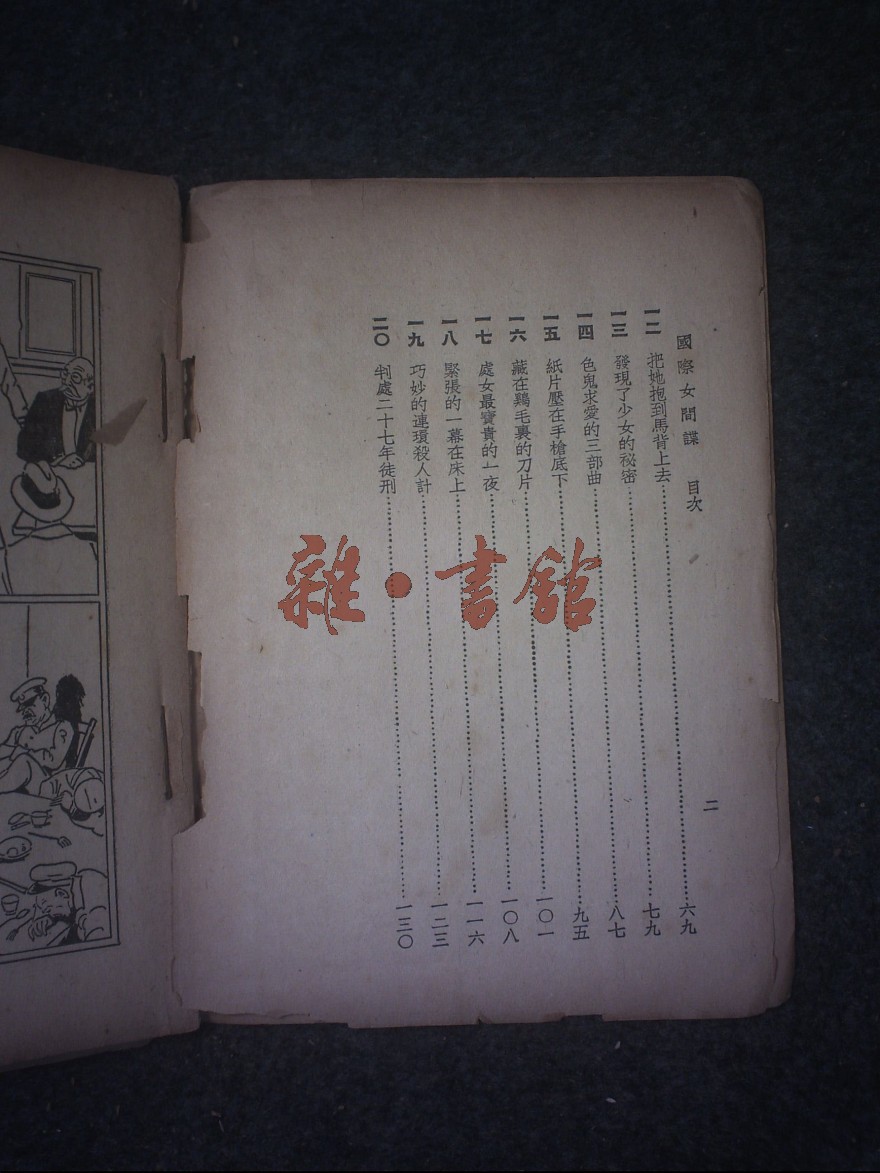 國際女間諜 目次
一二 把她抱到馬背上去 六九
一三 發現了少女的祕密 七九
一四 色鬼求愛的三部曲 八七
一五 紙片壓在手槍底下 九五
一六 藏在鷄毛裏的刀片 一〇一
一七 處女最寶貴的一夜 一〇八
一八 緊張的一幕在床上 一一六
一九 巧妙的連環殺人計 一二三
二〇 判處二十七年徒刑 一三〇
二
雜·書館